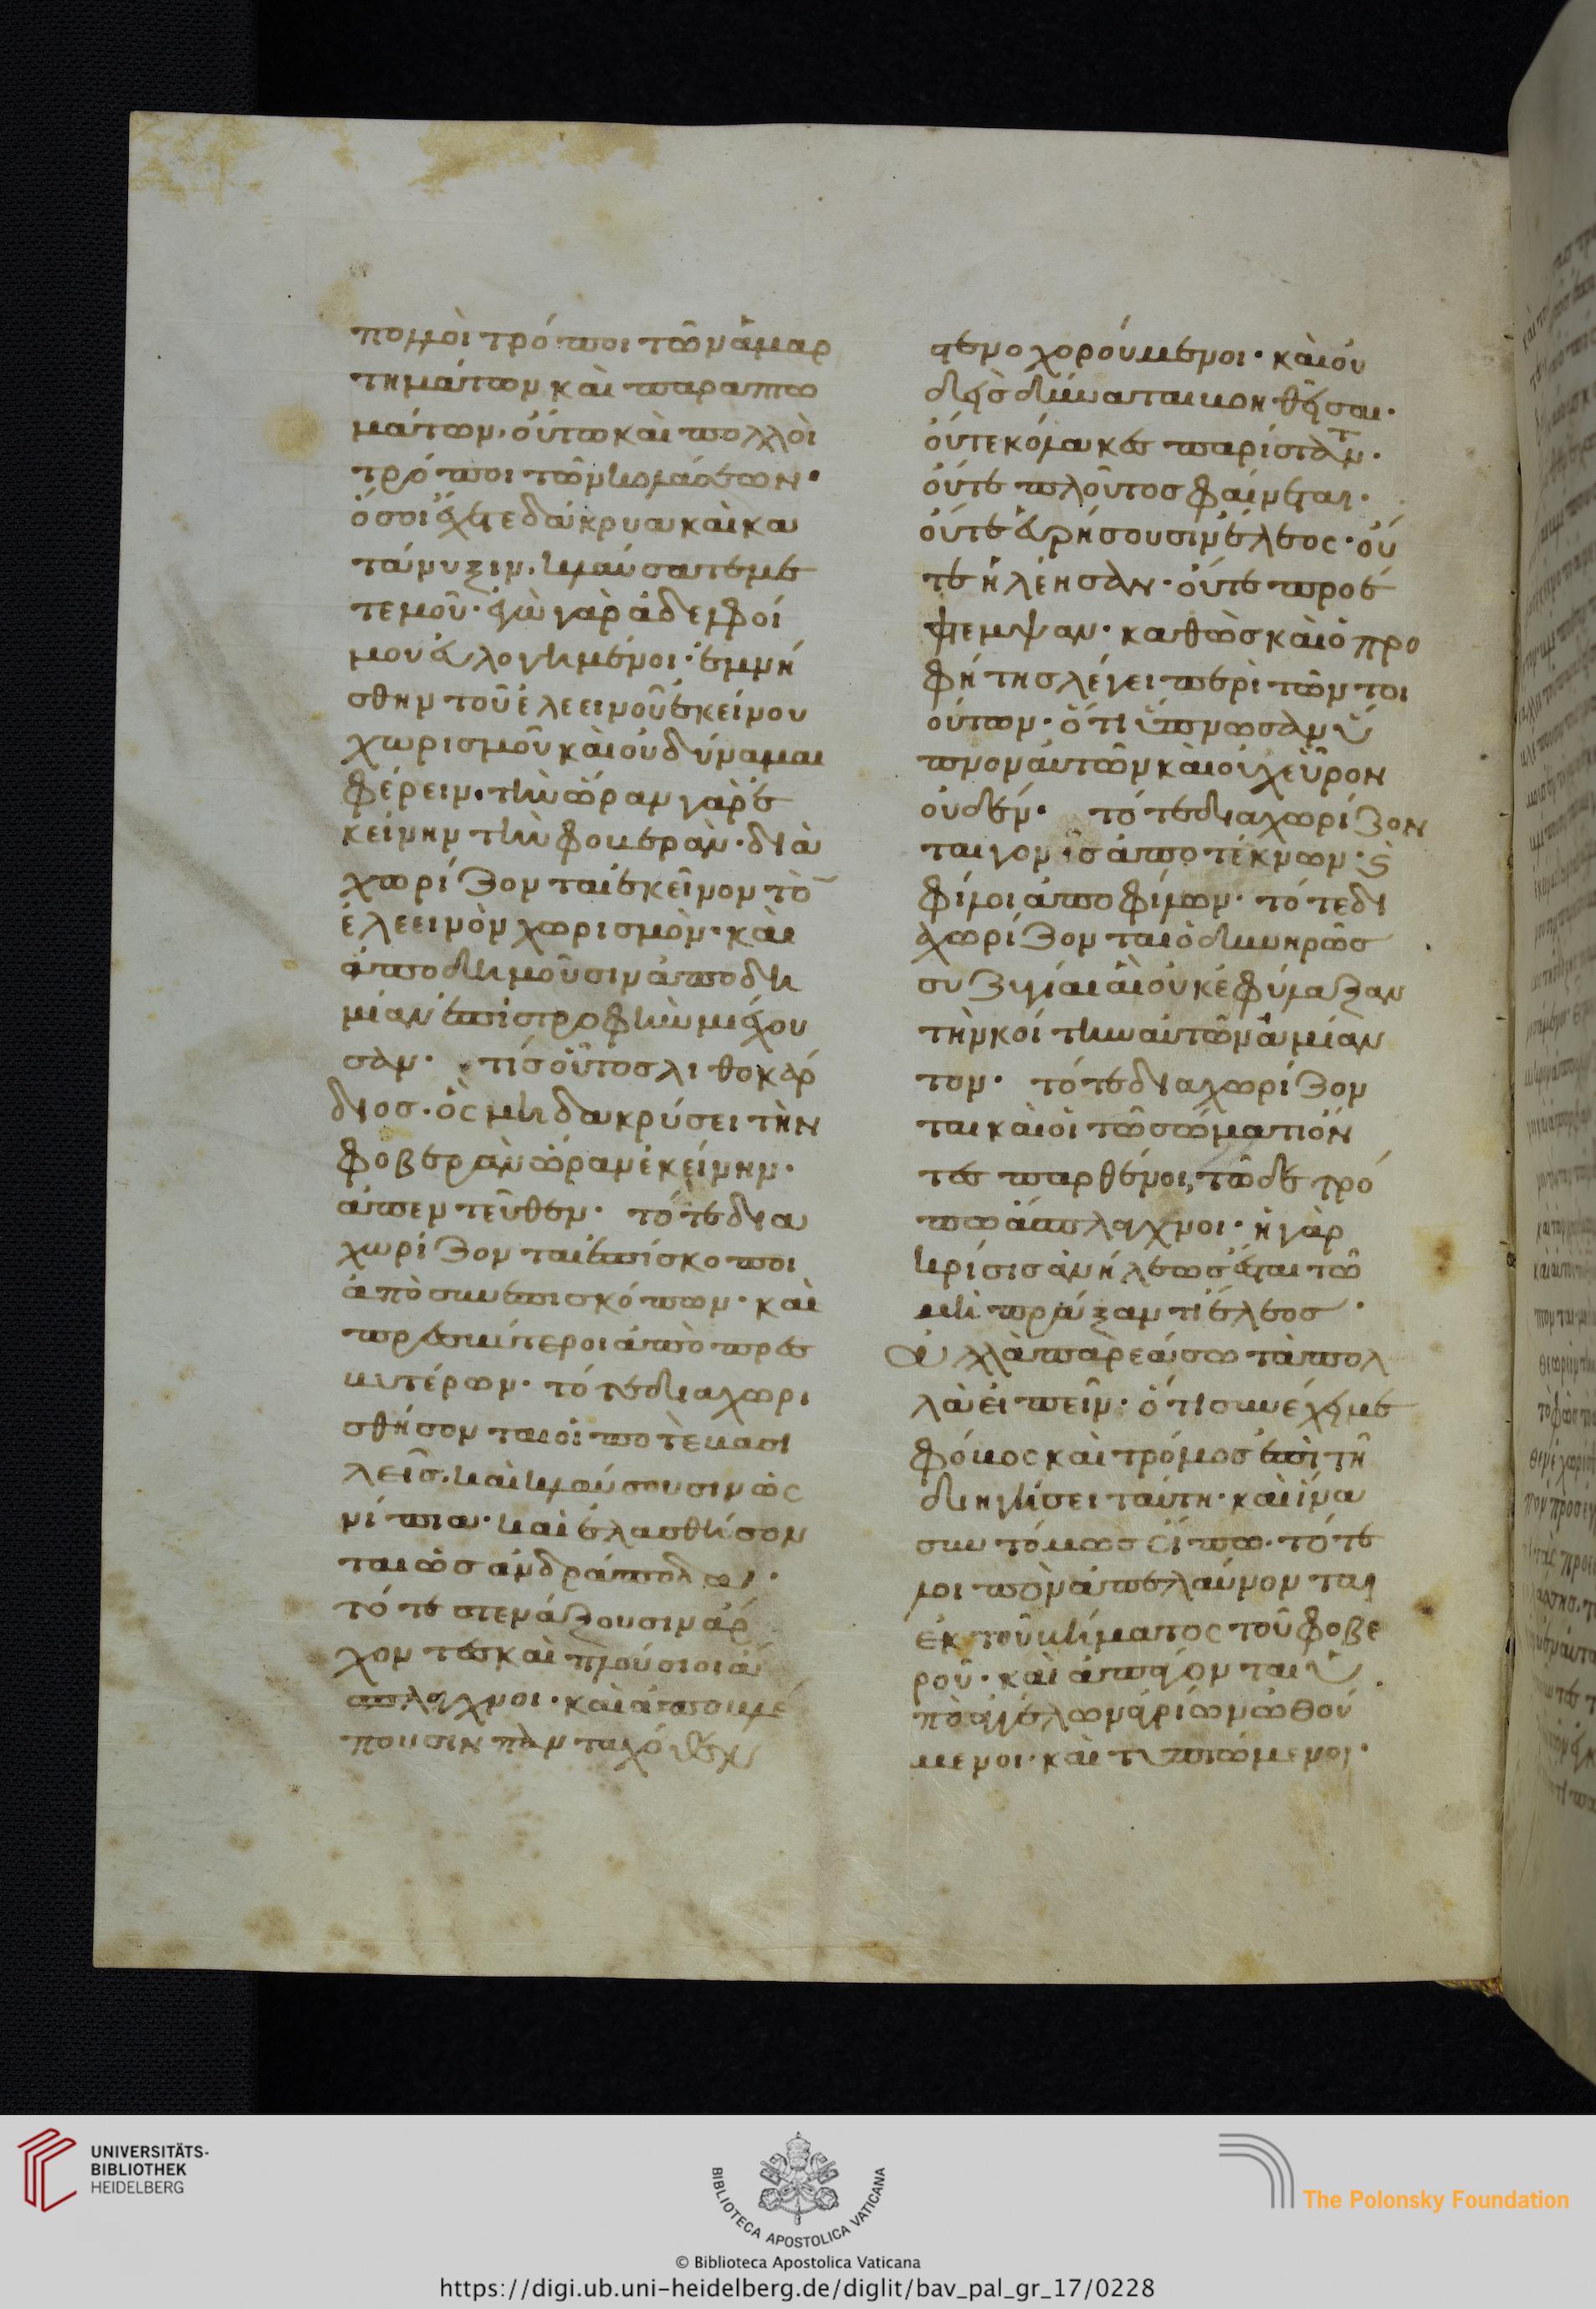 πολλοὶ τρόποι τῶν ἁμαρ
τημάτων καὶ παραπτω
μάτων· οὕτω καὶ πολλοὶ
τρόποι τῶν κολάσεων·
ὅσοι ἔχετε δάκρυα καὶ κα
τάνυξιν· κλαύσατε με
τ ἐμοῦ· ἐγὼ γὰρ ἀδελφοί
μου εὐλογημένοι· ἐμνή
σθην τοῦ ἐλεεινοῦ ἐκείνου
χωρισμοῦ καὶ οὐ δύναμαι
φέρειν· τὴν ὥραν γὰρ ἐ
κείνην τὴν φοβερὰν· δια
χωρίζονται ἐκεῖνον τὸ
ἐλεεινὸν χωρισμὸν· καὶ
ἀποδημοῦσιν ἀποδη
μίαν ἐπιστροφὴν μὴ ἔχου
σαν· τίς οὗτος λιθοκάρ
διος· ὃς μὴ δακρύσει τὴν
φοβερὰν ὥραν ἐκείνην·
ἀπεντεῦθεν· τότε δια
χωρίζονται ἐπίσκοποι
ἀπὸ συνεπισκόπων· καὶ
πρεσβύτεροι ἀπὸ πρεσ
βυτέρων· τότε διαχωρι
σθήσονται οἵ ποτε βασι
λεῖς· καὶ κλαύσουσιν ὡς
νήπια· καὶ ἐλασθήσον
ται ὡς ἀνδράποδα·
τότε στενάξουσιν ἄρ
χοντες καὶ πλούσιοι ἄ
σπλαγχνοι· καὶ ἀποβλέ
πουσιν πάντα
στενοχορούμενοι· καὶ οὐ
δεὶς δύναται βοηθῆσαι·
οὔτε κόλακες παρίσταντ·
οὔτε πλοῦτος φαίνεται·
οὔτε εὑρήσουσιν ἔλεος· οὐ
τε ἠλέησαν· οὔτε προσέ
πεμψαν· καθὼς καὶ ὁ προ
φήτης λέγει περὶ τῶν τοι
ούτων· ὅτι ὕπνωσαν ὕ
πνον αὐτῶν καὶ οὐχ εὗρον
οὐδέν· τότε διαχωρίζον
ται γονεῖς ἀπὸ τέκνων· ϗ
φίλοι ἀπὸ φίλων· τότε δι
αχωρίζονται ὀδυνηρῶς
συζυγίαι αἳ οὐκ ἐφύλαξαν
τὴν κοίτην αὐτῶν ἀμίαν
τον· τότε διαχωρίζον
ται καὶ οἱ τῶ σώματι ὄν
τες παρθένοι, τῶ δὲ τρό
πω ἄσπλαγχνοι· ἡ γὰρ
κρίσις ἀνήλεως ἔσται τῶ
μὴ πράξαντι ἔλεος·
Ἀλλὰ παρεάσω τὰ πολ
λὰ εἰπεῖν· ὅτι συνέχει με
φόβος καὶ τρόμος ἐπὶ τῆ
διηγήσει ταύτη· καὶ ἵνα
συντόμως εἴπω· τότε
λοιπὸν ἀπελαύνονται
ἐκ τοῦ βήματος τοῦ φοβε
ροῦ· καὶ ἀπάγονται ὑ
πὸ ἀγγέλων ἀγρίων ὠθού
μενοι· καὶ τυπτόμενοι·
UNIVERSITÄTS-
BIBLIOTHEK
HEIDELBERG
BIBLIOTECA APOSTOLICA VATICANA
The Polonsky Foundation
© Biblioteca Apostolica Vaticana
https://digi.ub.uni-heidelberg.de/diglit/bav_pal_gr_17/0228